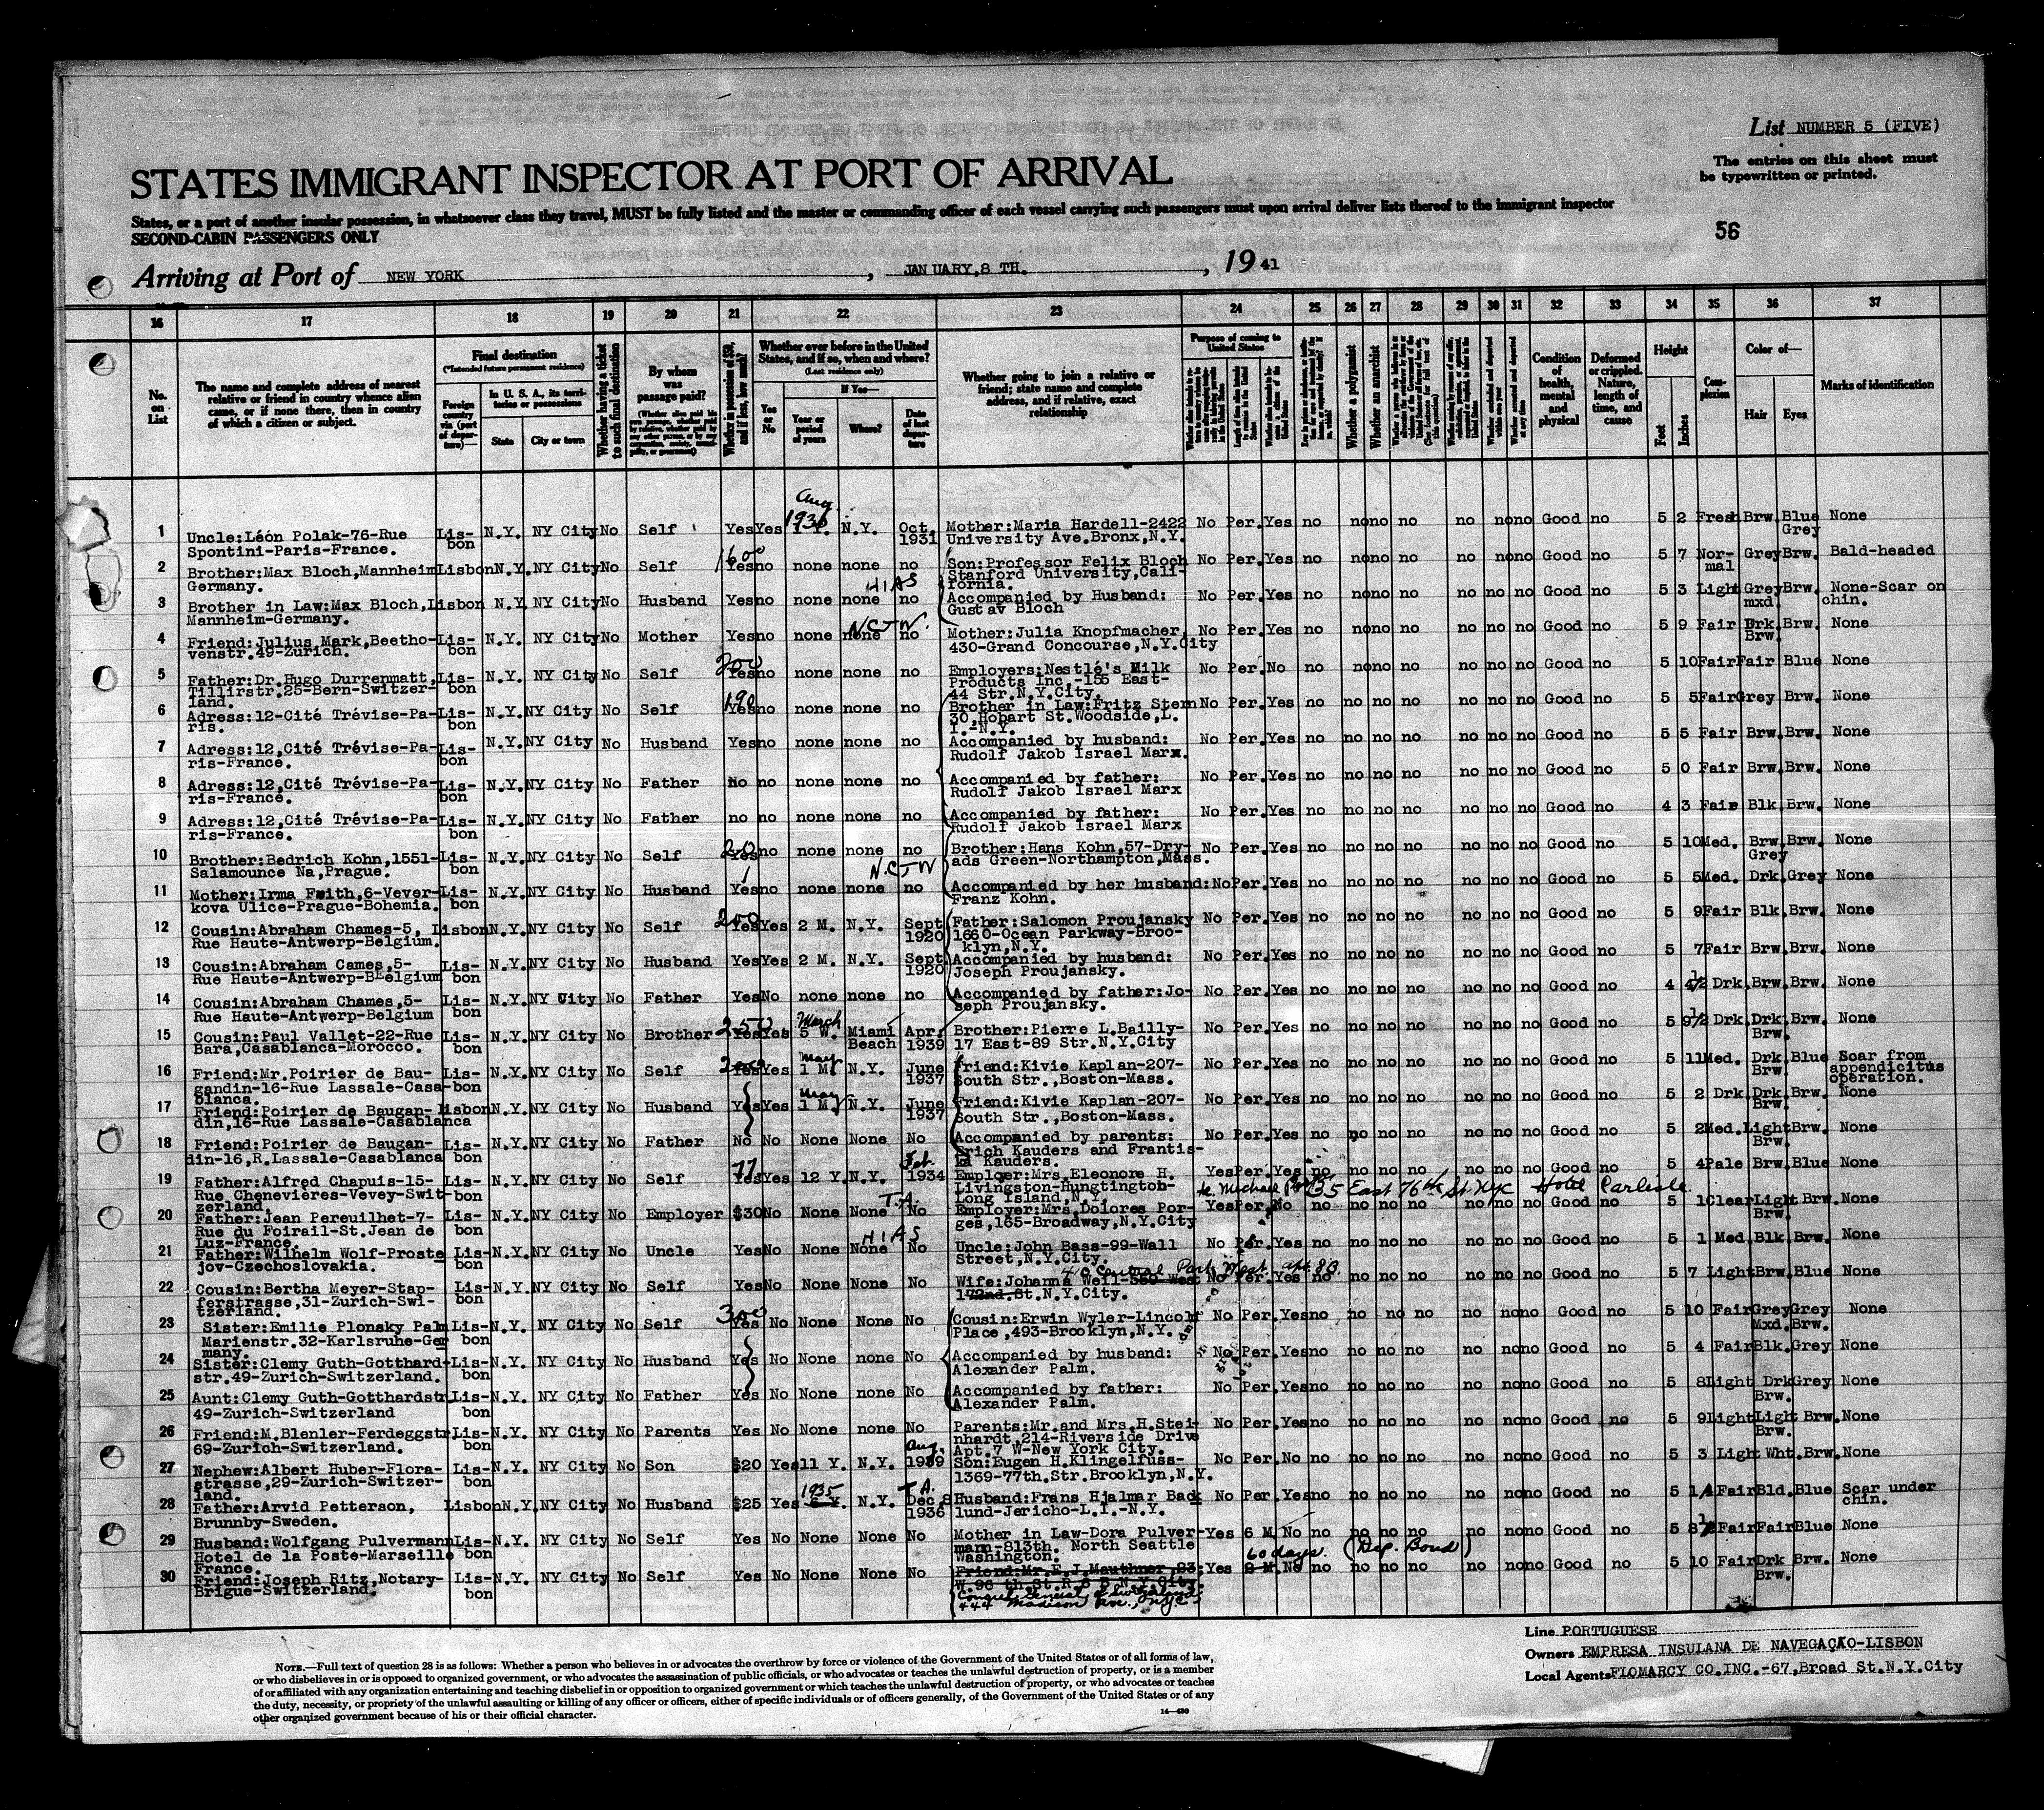 List NUMBER 5 (FIVE)
The entries on this sheet must
be typewritten or printed.
STATES IMMIGRANT INSPECTOR AT PORT OF ARRIVAL
States, or a port of another insular possession, in whatsoever class they travel, MUST be fully listed and the master or commanding officer of each vessel carrying such passengers must upon arrival deliver lists thereof to the immigrant inspector
SECOND-CABIN PASSENGERS ONLY
56
Arriving at Port of NEW YORK, JANUARY,8 TH., 1941
16 17 18 19 20 21 22 23 24 25 26 27 28 29 30 31 32 33 34 35 36 37
No. on List
The name and complete address of nearest relative or friend in country whence alien came, or if none there, then in country of which a citizen or subject.
Final destination
(*Intended future permanent residence)
Foreign country via (port of departure)—
In U. S. A., its territories or possessions
State
City or town
Whether having a ticket to such final destination
By whom was passage paid?
Whether ever before in the United States, and if so, when and where?
(Last residence only)
Yes or No
If Yes—
Year or period of years
Where?
Date of last departure
Whether going to join a relative or friend; state name and complete address, and if relative, exact relationship
Purpose of coming to United States
Whether a polygamist
Whether an anarchist
Condition of health, mental and physical
Deformed or crippled. Nature, length of time, and cause
Height
Feet
Inches
Complexion
Color of—
Hair
Eyes
Marks of identification
1 Uncle:Léón Polak-76-Rue Spontini-Paris-France. Lisbon N.Y. NY City No Self Yes Yes Aug 1930 N.Y. Oct. 1931 Mother:Maria Hardell-2422 University Ave.Bronx,N.Y. No Per. Yes no no no no no no no Good no 5 2 Fresh Brw. Blue Grey None
2 Brother:Max Bloch,Mannheim Germany. Lisbon N.Y. NY City No Self 1600 Yes no none none no Son:Professor Felix Bloch Stanford University,California. No Per. Yes no no no no no no no Good no 5 7 Normal Grey Brw. Bald-headed
3 Brother in Law:Max Bloch, Mannheim-Germany. Lisbon N.Y. NY City No Husband Yes no none none HIAS no Accompanied by Husband: Gustav Bloch No Per. Yes no no no no no no no Good no 5 3 Light Grey mxd. Brw. None-Scar on chin.
4 Friend:Julius Mark,Beethovenstr.49-Zurich. Lisbon N.Y. NY City No Mother Yes no none none no Mother:Julia Knopfmacher, 430-Grand Concourse,N.Y.City No Per. Yes no no no no no no no Good no 5 9 Fair Drk Brw. Brw. None
5 Father:Dr.Hugo Durrenmatt, Tillirstr.25-Bern-Switzerland. Lisbon N.Y. NY City No Self 200 Yes no none none no Employers:Nestlé's Milk Products Inc.-155 East-44 Str.N.Y.City. No Per. No no no no no no no no Good no 5 10 Fair Fair Blue None
6 Adress:12-Cité Trévise-Paris. Lisbon N.Y. NY City No Self 190 Yes no none none no Brother in Law:Fritz Stern 30,Hobart St.Woodside,L.I.-N.Y. No Per. Yes no no no no no no no Good no 5 5 Fair Grey Brw. None
7 Adress:12,Cité Trévise-Paris-France. Lisbon N.Y. NY City No Husband Yes no none none no Accompanied by husband: Rudolf Jakob Israel Marx. No Per. Yes no no no no no no no Good no 5 5 Fair Brw. Brw. None
8 Adress:12,Cité Trévise-Paris-France. Lisbon N.Y. NY City No Father No no none none no Accompanied by father: Rudolf Jakob Israel Marx No Per. Yes no no no no no no no Good no 5 0 Fair Brw. Brw. None
9 Adress:12,Cité Trévise-Paris-France. Lisbon N.Y. NY City No Father no no none none no Accompanied by father: Rudolf Jakob Israel Marx No Per. Yes no no no no no no no Good no 4 3 Fair Blk. Brw. None
10 Brother:Bedrich Kohn,1551-Salamounce Na,Prague. Lisbon N.Y. NY City No Self Yes no none none no Brother:Hans Kohn,57-Dryads Green-Northampton,Mass. No Per. Yes no no no no no no no Good no 5 10 Med. Brw. Grey Brw. None
11 Mother:Irma Feith,6-Veverkova Ulice-Prague-Bohemia. Lisbon N.Y. NY City No Husband Yes no none none no Accompanied by her husband: Franz Kohn. No Per. Yes no no no no no no no Good no 5 5 Med. Drk. Grey None
12 Cousin:Abraham Chames-5, Rue Haute-Antwerp-Belgium. Lisbon N.Y. NY City No Self 200 Yes Yes 2 M. N.Y. Sept 1920 Father:Salomon Proujansky 1660-Ocean Parkway-Brooklyn,N.Y. No Per. Yes no no no no no no no Good no 5 9 Fair Blk. Brw. None
13 Cousin:Abraham Cames,5-Rue Haute-Antwerp-BElgium Lisbon N.Y. NY City No Husband Yes Yes 2 M. N.Y. Sept 1920 Accompanied by husband: Joseph Proujansky. No Per. Yes no no no no no no no Good no 5 7 Fair Brw. Brw. None
14 Cousin:Abraham Chames,5-Rue Haute-Antwerp-Belgium Lisbon N.Y. NY City No Father Yes No none none no Accompanied by father:Joseph Proujansky. No Per. Yes no no no no no no no Good no 4 Drk. Brw. Brw. None
15 Cousin:Paul Vallet-22-Rue Bara,Casablanca-Morocco. Lisbon N.Y. NY City No Brother 250 Yes Yes March 5 W. Miami Beach Apr. 1939 Brother:Pierre L.Bailly-17 East-89 Str.N.Y.City No Per. Yes no no no no no no no Good no 5 9½ Drk. Drk Brw. Brw. None
16 Friend:Mr.Poirier de Baugandin-16-Rue Lassale-Casablanca. Lisbon N.Y. NY City No Self Yes Yes May 1 M. N.Y. June 1937 Friend:Kivie Kaplan-207-South Str.,Boston-Mass. No Per. Yes no no no no no no no Good no 5 11 Med. Drk Brw. Blue Scar from appendicitus operation.
17 Friend:Poirier de Baugandin,16-Rue Lassale-Casablanca Lisbon N.Y. NY City No Husband Yes Yes May 1 M. N.Y. June 1937 Friend:Kivie Kaplan-207-South Str.,Boston-Mass. No Per. Yes no no no no no no no Good no 5 2 Drk. Drk Brw. Brw. None
18 Friend:Poirier de Baugandin-16,R.Lassale-Casablanca Lisbon N.Y. NY City No Father No No None None No Accompanied by parents: Erich Kauders and Frantiska Kauders. No Per. Yes no no no no no no no Good no 5 2 Med. Light Brw. Brw. None
19 Father:Alfred Chapuis-15-Rue Chenevières-Vevey-Switzerland. Lisbon N.Y. NY City No Self 77 Yes Yes 12 Y. N.Y. Feb. 1934 Employer:Mrs.Eleonore H. Livingston-Hungtington-Long Island,N.Y. Yes Per. Yes no no no no no no no Good no 5 4 Pale Brw. Blue None
35 East 76th St. NYC Hotel Carlisle
20 Father:Jean Pereuilhet-7-Rue du Foirail-St.Jean de Luz-France. Lisbon N.Y. NY City No Employer $30 No None None T.A. No Employer:Mrs.Dolores Porges,165-Broadway,N.Y.City Yes Per. No no no no no no no no Good no 5 1 Clear Light Brw. Brw. None
21 Father:Wilhelm Wolf-Prostejov-Czechoslovakia. Lisbon N.Y. NY City No Uncle Yes No None None HIAS No Uncle:John Bass-99-Wall Street,N.Y.City. No Per. Yes no no no no no no no Good no 5 1 Med. Blk. Brw. None
22 Cousin:Bertha Meyer-Stapferstrasse,31-Zurich-Switzerland. Lisbon N.Y. NY City No Self Yes No None None No Wife:Johanna Weil-560 West 172nd.St.N.Y.City. Central Park West apt. 8B. No Per. Yes no no no no no no no Good no 5 7 Light Brw. Blue None
23 Sister:Emilie Plonsky Palm Marienstr.32-Karlsruhe-Germany. Lisbon N.Y. NY City No Self 300 Yes No None None No Cousin:Erwin Wyler-Lincoln Place,493-Brooklyn,N.Y. No Per. Yes no no no no no no no Good no 5 10 Fair Grey Mxd. Grey Brw. None
24 Sister:Clemy Guth-Gotthardstr.49-Zurich-Switzerland. Lisbon N.Y. NY City No Husband Yes No None none No Accompanied by husband: Alexander Palm. No Per. Yes no no no no no no no Good no 5 4 Fair Blk. Grey None
25 Aunt:Clemy Guth-Gotthardstr 49-Zurich-Switzerland Lisbon N.Y. NY City No Father Yes No None none No Accompanied by father: Alexander Palm. No Per. Yes no no no no no no no Good no 5 8 Light Drk Brw. Grey None
26 Friend:M.Blenler-Ferdeggstr 69-Zurich-Switzerland. Lisbon N.Y. NY City No Parents Yes No None none No Parents:Mr.and Mrs.H.Steinhardt,214-Riverside Drive Apt.7 W-New York City. No Per. Yes no no no no no no no Good no 5 9 Light Light Brw. Brw. None
27 Nephew:Albert Huber-Florastrasse,29-Zurich-Switzerland. Lisbon N.Y. NY City No Son $20 Yes 11 Y. N.Y. Aug. 1939 Son:Eugen H.Klingelfuss-1369-77th.Str.Brooklyn,N.Y. No Per. No no no no no no no no Good no 5 3 Light Wht. Brw. None
28 Father:Arvid Petterson, Brunnby-Sweden. Lisbon N.Y. NY City No Husband $25 Yes 1935 N.Y. T.A. Dec. 8 1936 Husband:Frans Hjalmar Backlund-Jericho-L.I.-N.Y. No Per. Yes no no no no no no no Good no 5 Fair Bld. Blue Scar under chin.
29 Husband:Wolfgang Pulvermann Hotel de la Poste-Marseille France. Lisbon N.Y. NY City No Self Yes No None None No Mother in Law-Dora Pulvermann-813th. North Seattle Washington. Yes 6 M. No no no no no no no no Good no 5 8½ Fair Fair Blue None
60 days. (Dep. Bond)
30 Friend:Joseph Ritz,Notary-Brigue-Switzerland. Lisbon N.Y. NY City No Self Yes No None None No Friend:Mr.E.J.Mauthner,23: W.96 th.St. N.Y.City. Consul General of Switzerland 444 Madison Ave., NYC Yes No no no no no no no no Good no 5 10 Fair Drk Brw. Brw. None
Line PORTUGUESE
Owners EMPRESA INSULANA DE NAVEGAÇÃO-LISBON
Local Agents FIOMARCY CO.INC.-67,Broad St.N.Y.City
NOTE.—Full text of question 28 is as follows: Whether a person who believes in or advocates the overthrow by force or violence of the Government of the United States or of all forms of law,
or who disbelieves in or is opposed to organized government, or who advocates the assassination of public officials, or who advocates or teaches the unlawful destruction of property, or is a member
of or affiliated with any organization entertaining and teaching disbelief in or opposition to organized government or which teaches the unlawful destruction of property, or who advocates or teaches
the duty, necessity, or propriety of the unlawful assaulting or killing of any officer or officers, either of specific individuals or of officers generally, of the Government of the United States or of any
other organized government because of his or their official character.
14—430